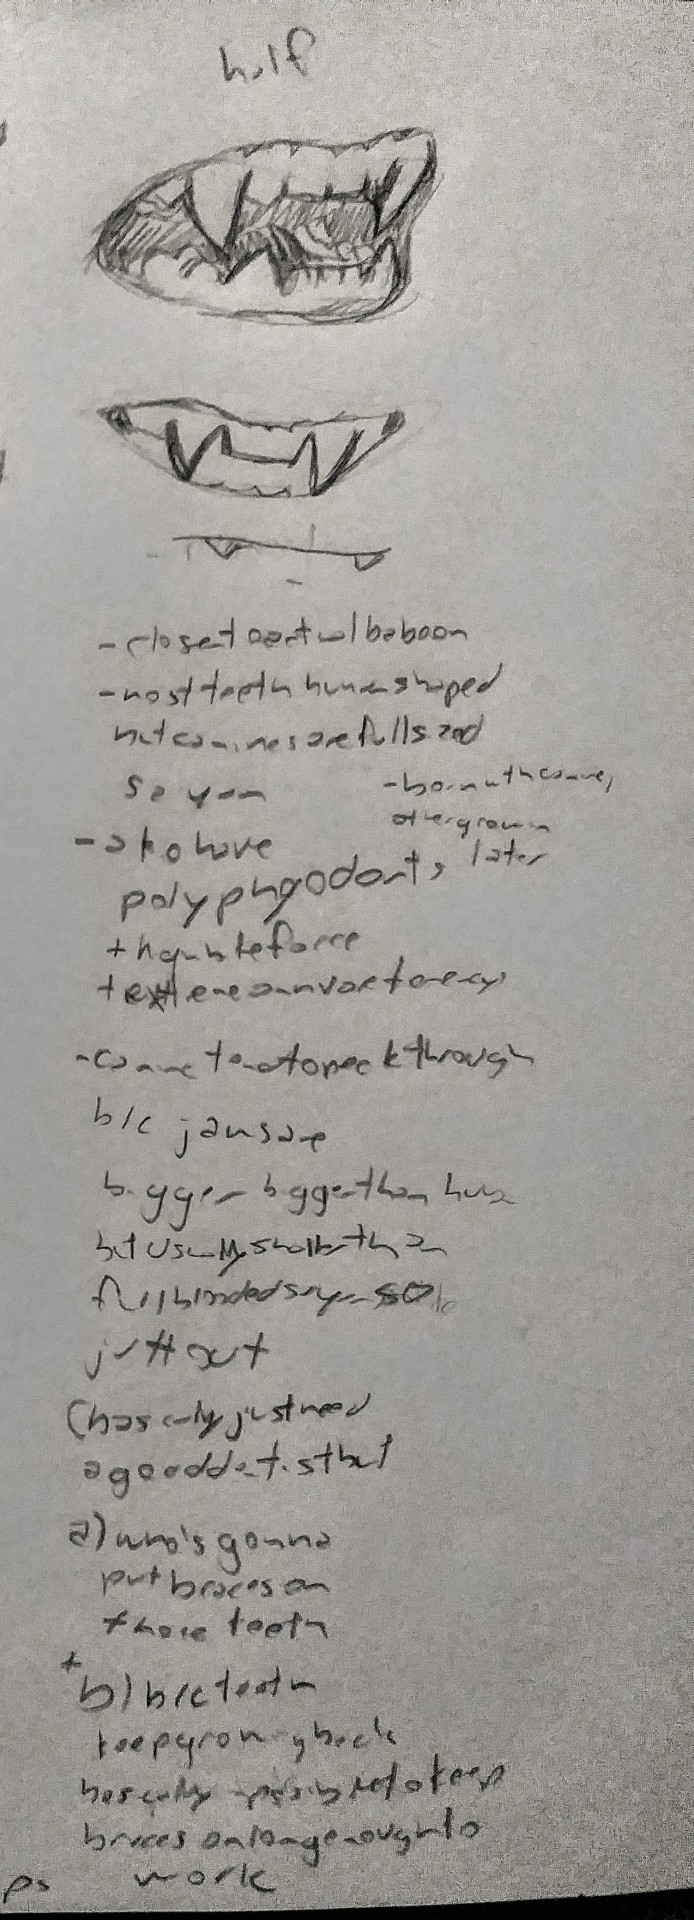 half
- closest to actual baboon
- most teeth human shaped
but canines are full sized
saiyan
- born with canines,
other grow in
later
- also have
polyphyodonts
+ high bite force
+ extreme carnivore tendency
- canine tend to peek through
b/c jaws are
bigger bigger than human
but usually smaller than
full blooded saiyan so
jutt out
(basically just need
a good dentist but
a) who's gonna
put braces on
those teeth
+
b) b/c teeth
keep growing back
basically impossible to keep
braces on long enough to
work
ps